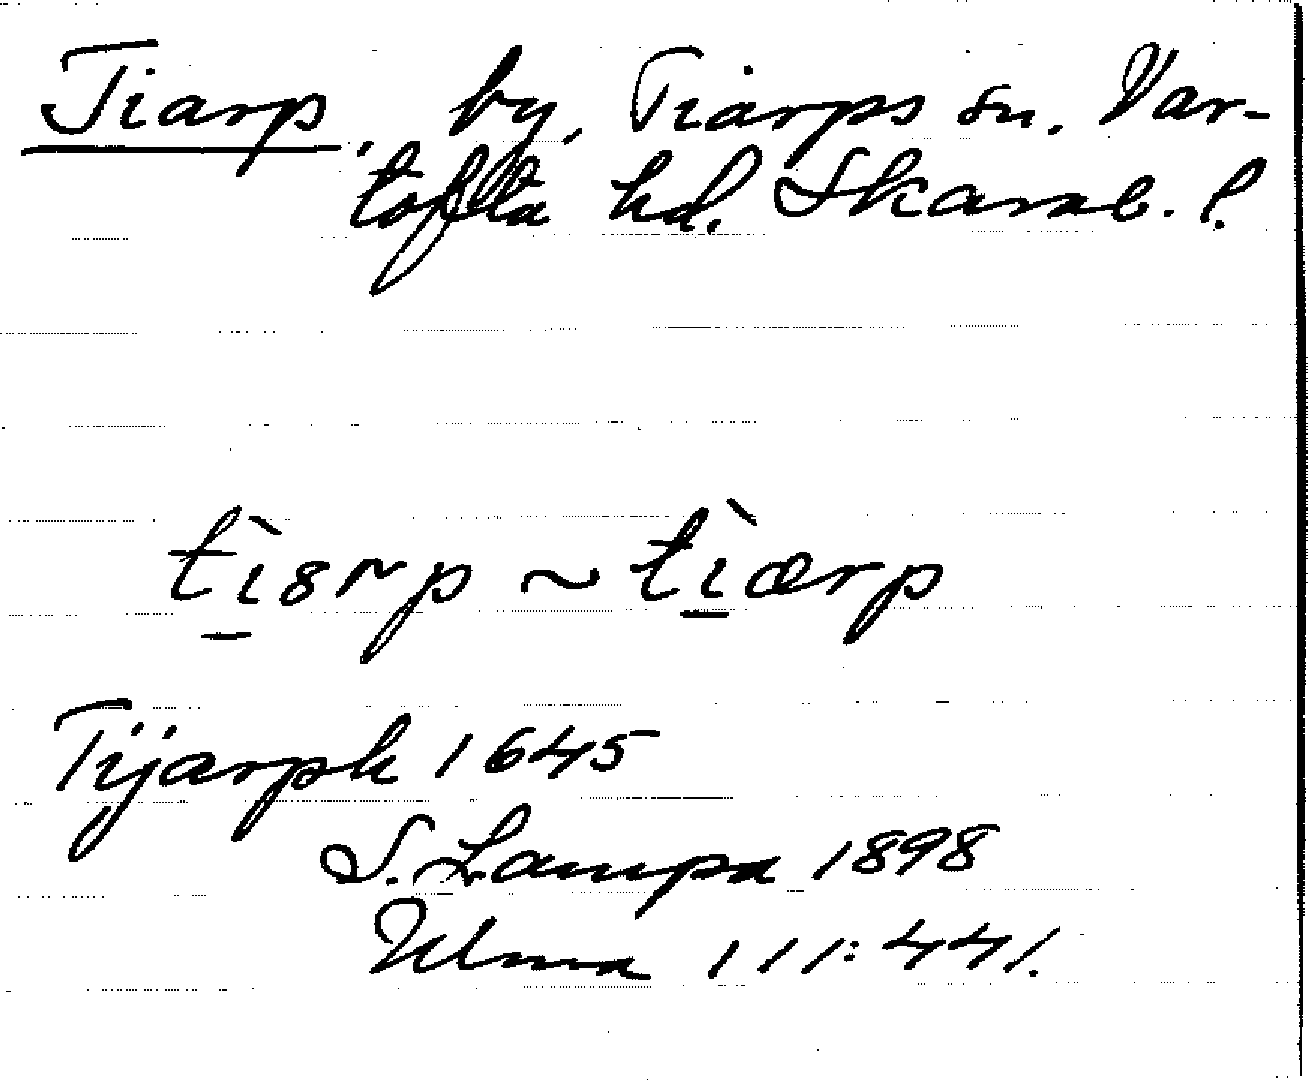 Tiarp, by, Tiarps sn. Var-
tofta hd. Skarab. l.
tì̠ɞrp ~ tì̠ærp
Tijarph 1645
S. Lampa 1898
Ulma 111:441.